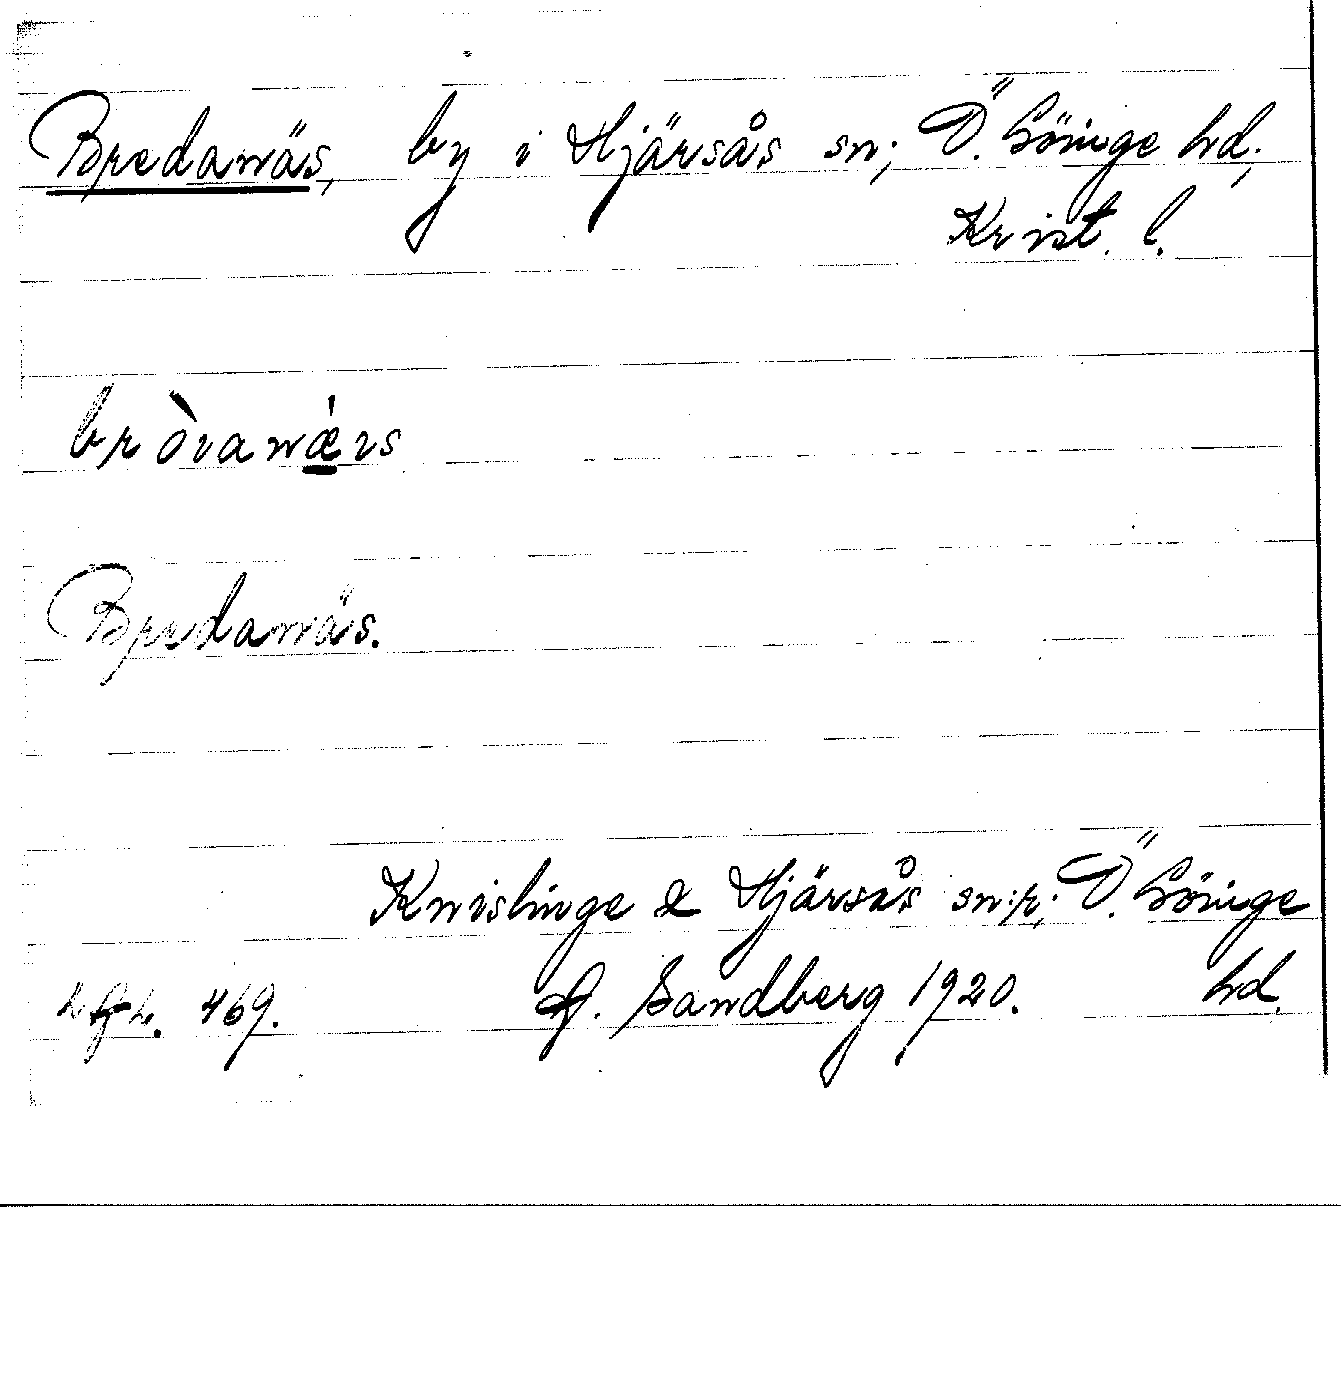 Bredanäs, by i Hjärsås sn; Ö. Göinge hd;
Krist. l.
bròıanǽıs
Bredanäs.
Knislinge & Hjärsås sn:r; Ö. Göinge
hd.
469. Sandberg 1920.